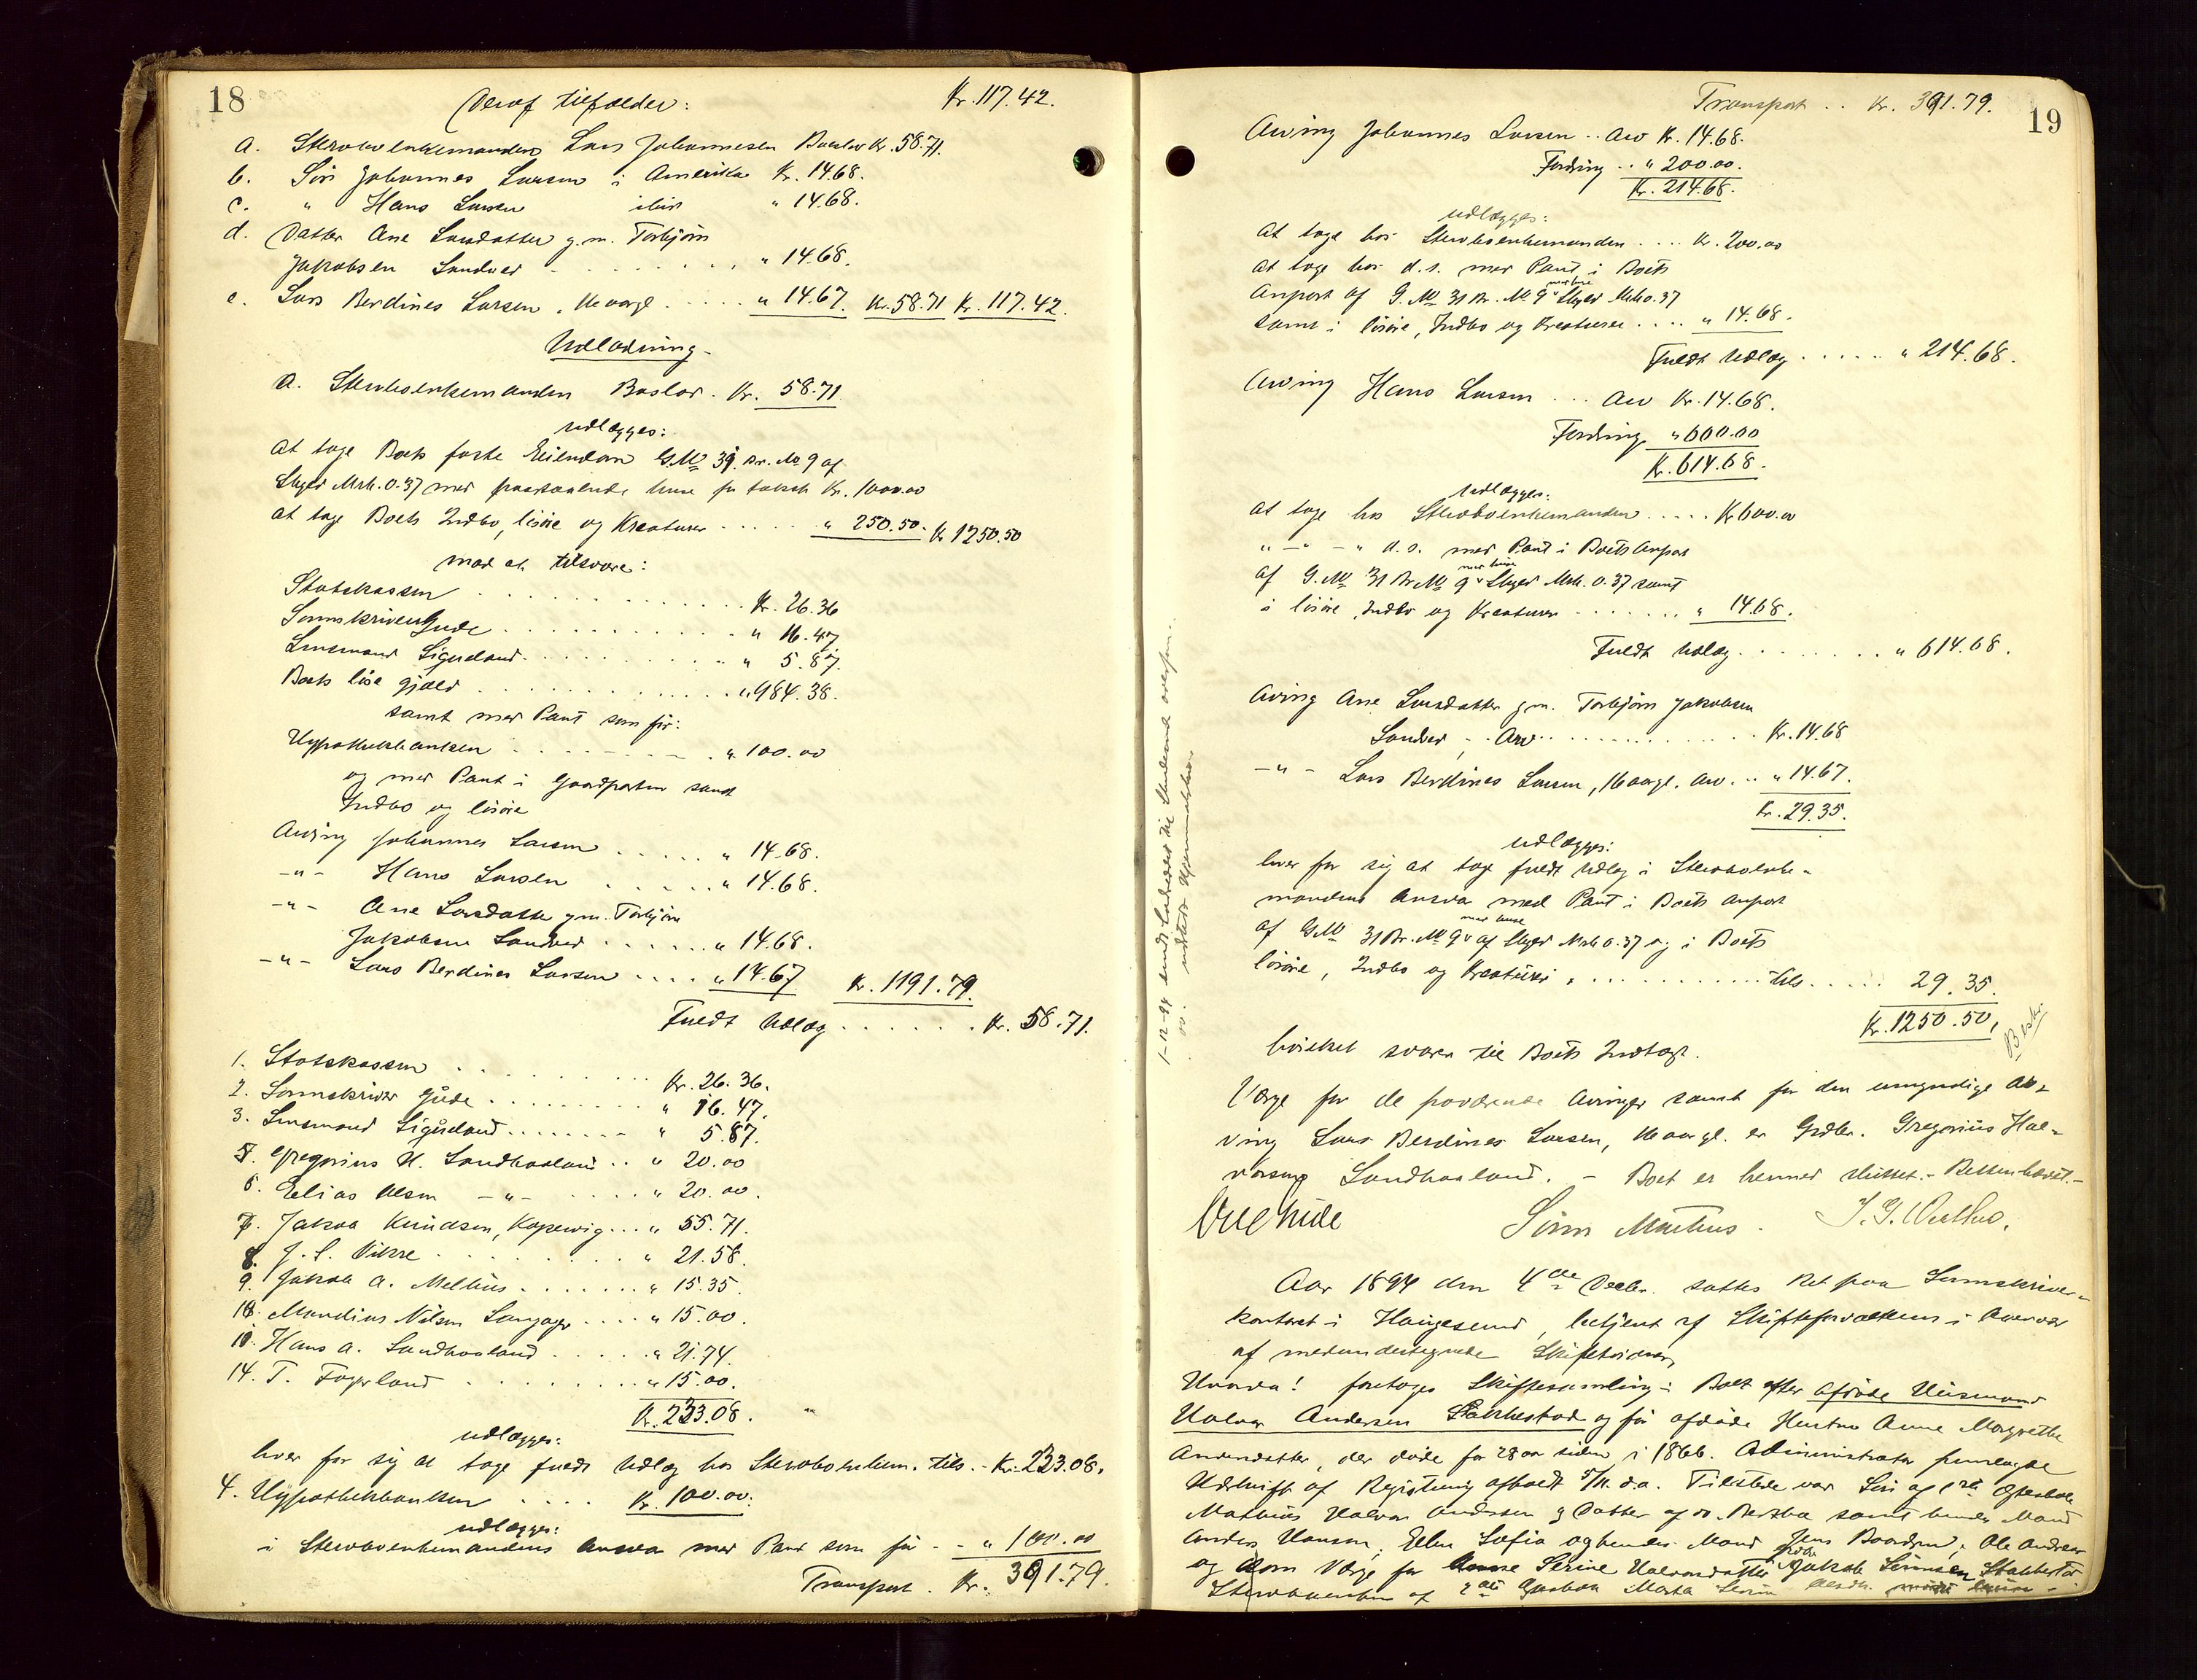 18
Deraf tilfalder: Kr. 117.42.
a. Stervboenkemanden Lars Johannesen Boeslov Kr. 58.71.
b. Søn Johannes Larsen i Amerika Kr. 14.68.
c. " Hans Larsen ibid. " 14.68.
d. Datter Ane Larsdatter g. m. Torbjørn
Jakobsen Sandved " 14.68.
e. Lars Berdines Larsen, 16 aargl. " 14.67. Kr. 58.71 Kr. 117.42.
Udlodning.
a. Stervboenkemanden Boslod. Kr. 58.71.
udlægges:
at tage Boets faste Eiendom G. No 31. Br. No 9 af
Skyld Mrk. 0.37 med paastaaende huse for takst Kr. 1000.00
at tage Boets Indbo, løsøre og Kreaturer " 250.50. Kr 1250.50
mod at tilsvare:
Statskassen Kr. 26.36
Sorenskriver Gude " 16.47
Lensmand Sigveland " 5.87.
Boets løse gjæld " 984.38.
samt med Pant som før:
Hypothekbanken " 100.00
og med Pant i Gaardparten samt
Indbo og løsøre
Arving Johannes Larsen " 14.68.
-"- Hans Larsen " 14.68.
-"- Ane Larsdatter g. m. Torbjørn
Jakobsen Sandved " 14.68.
-"- Lars Berdines Larsen " 14.67 Kr. 1191.79.
Fuldt Udlæg Kr. 58.71.
1. Statskassen Kr. 26.36.
2. Sorenskriver Gude " 16.47.
3. Lensmand Sigveland " 5.87.
5. Gregorius H. Sandhaaland " 20.00
6. Elias Olsen -"- " 20.00.
7. Jakob Knudsen, Kopervig " 55.71.
8. J. L. Vikse " 21.58.
9. Jakob A. Melhus " 15.35.
Mandius Nilsen " 15.00.
Hans A. Sandhaaland " 21.74.
14. T. Fagerland " 15.00.
Kr. 233.08.
udlægges:
hver for sig at tage fuldt Udlæg hos Stervboenkem. tils. Kr. 233.08.
4. Hypothekbanken Kr. 100.00.
udlægges:
i Stervboenkemandens Ansvar med Pant som før " 100.00
Transport. Kr. 391.79.
19
Transport Kr. 391.79.
Arving Johannes Larsen Arv Kr. 14.68.
Fordring " 200.00.
Kr. 214.68.
udlægges:
at tage hos Stervboenkemanden Kr. 200.00
at tage hos d. s. med Pant i Boets
Anpart af G. No 31 Br. No 9 med huse Skyld Mrk 0.37
samt i løsøre, Indbo og Kreaturer " 14.68.
Fuldt Udlæg " 214.68.
Arving Hans Larsen Arv Kr. 14.68.
Fordring " 600.00
Kr. 614.68.
udlægges:
at tage hos Stervboenkemanden Kr 600.00
" - " - " d. s. med Pant i Boets Anpart
af G. No 31 Br. No 9 med huse Skyld Mrk. 0.37 samt
i løsøre, Indbo og Kreaturer " 14.68.
Fuldt Udlæg " 614.68.
Arving Ane Larsdatter g. m. Torbjørn Jakobsen
Sandved, Arv Kr. 14.68
-"- Lars Berdines Larsen, 16 aargl. Arv " 14.67.
Kr. 29.35.
udlægges:
hver for sig at tage fuldt Udlæg i Stervboenke-
mandens Ansvar med Pant i Boets Anpart
af G. No 31 Br. No 9 med huse af Skyld Mrk 0.37 og i Boets
løsøre, Indbo og Kreaturer, tils 29.35.
Kr. 1250.50,
hvilket svarer til Boets Indtægt.
Værge for de fraværende Arvinger samt for den umyndige Ar-
ving Lars Berdines Larsen, 16 aargl. er Grdbr. Gregorius Hal-
vorsen Sandhaaland. - Boet er hermed sluttet. - Retten hævet. -
Søren Mæhus.
Aar 1894 den 4de Decbr. sattes Ret paa Sorenskriver-
kontoret i Haugesund, betjent af Skifteforvalteren i Overvær
af medundertegnede Skiftevidner,
Hvorda! foretoges Skiftesamling i Boet efter afdøde Husmand
Halvor Andersen Stakkestad og før afdøde Hustru Anne Margrethe
Andersdatter, der døde for 28 aar siden i 1866. Administrator fremlagde
Udskrift af Registrering afholdt 5/11 d. a. Tilstede var Søn af 1ste Ægteskab
Mathias Halvor Andersen og Datter af do. samt hendes Mand
Anders Hansen, Ellen Sofia og hendes Mand Jens Baardsen, Ole Andreas
og som Værge for Serine Halvorsdatter Jakob Stakkestad
Stervboenken af 2det